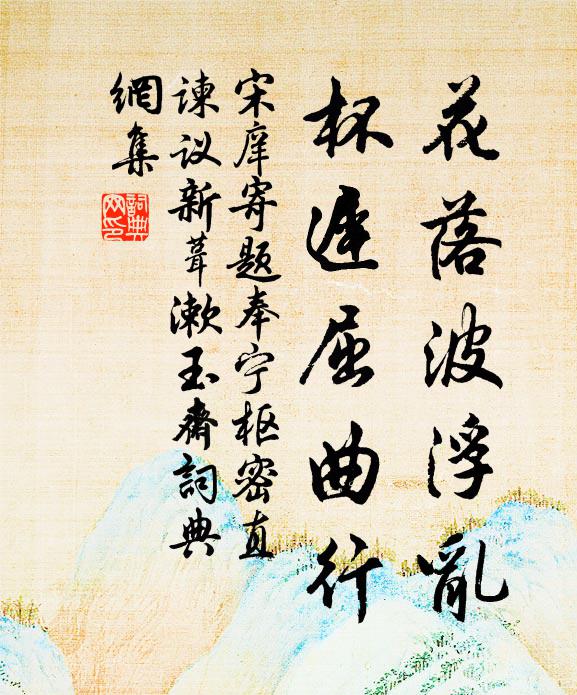 花落波浮乱
杯遅屈曲行
宋庠寄题奉宁枢密直
谏议新葺漱玉斋詞典
網集
詞典网印